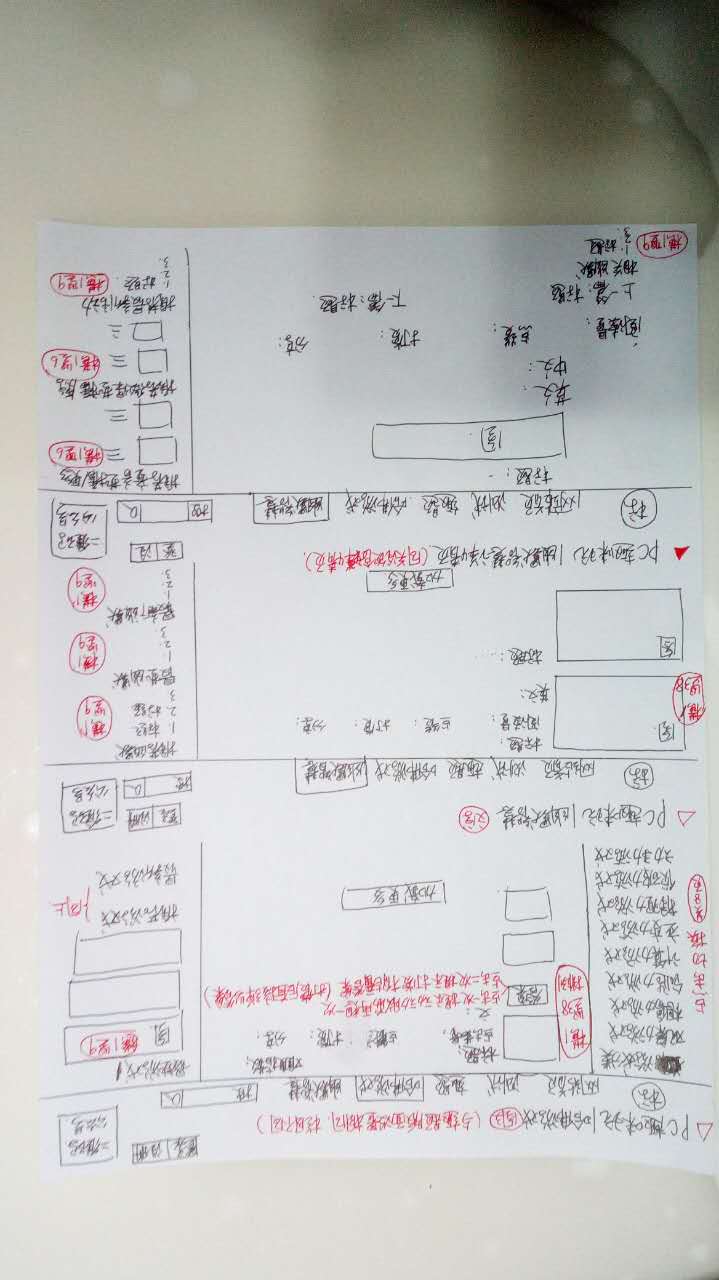 登录 注册
二维码
公众号
△ PC趣味玩|哈佛游戏 (与趣题版面设置相同.栏目不同)
标
网站首页 测试 趣题 哈佛游戏 幽默智慧 搜
游戏分类
观察力游戏
想象力游戏
创造力游戏
计算力游戏
应变力游戏
推理力游戏
侦破力游戏
动手游戏
点击切换
共8页
横1
竖38
排列
标题: 难度指数:
点击量: 点赞: 打赏: 分享:
文:
答案
点击一次提示动动脑筋再想一次
点击二次提示打赏才能看答案 (打赏后直接弹出答案)
加载更多
最热游戏
图. 横1竖9
推荐游戏
最新游戏
同上
△ PC趣味玩|幽默智慧 文字
登录 注册
二维码
公众号
搜
标
网站首页 测试 趣题 哈佛游戏 幽默智慧
横1
竖38
图.
标题:
阅读量: 点赞: 打赏: 分享:
英文:
图
标题:....
加载更多
推荐幽默
1. 标题
2. 标题
3.
横1
竖9
最热幽默
1.
2.
3.
横1
竖9
最新幽默
1.
2.
3.
横1
竖9
▲ PC趣味玩|幽默智慧详情页
登 注
二维码
公众号
标
网站首页 测试 趣题 哈佛游戏 幽默智慧
搜
标题:
图.
英文:
中文:
阅读量: 点赞: 打赏: 分享:
上一篇:标题 下一篇:标题.
相关幽默
1. 标题
2.
3.
横1竖9
横1竖6
横1竖6
推荐最新活动
1. 标题.
2.
3.
横1竖9